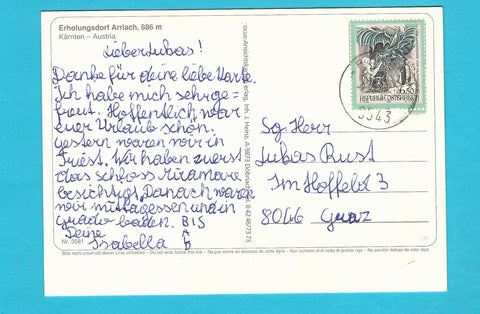 Erholungsdorf Arriach, 886 m
Kärnten – Austria
Lieber Lukas!
Danke für deine liebe Karte.
Ich habe mich sehr ge=
freut. Hoffentlich war
euer Urlaub schön.
gestern waren wir in
Triest. Wir haben zuerst
das schloss Miramare
besichtigt. Danach waren
wir mittagessen und in
Grado baden. BIS
Deine
Isabella
Nr. 3581
REPUBLIK ÖSTERREICH
9543
Sg Herr
Lukas Rust
Im Hoffeld 3
8046 Graz
Bitte nicht unterhalb dieser Linie schreiben - Do not write below this line - Ne pas écrire au dessous de cette ligne - Non scrivere al di sotto di questa riga - No escribir debajo de esta raya